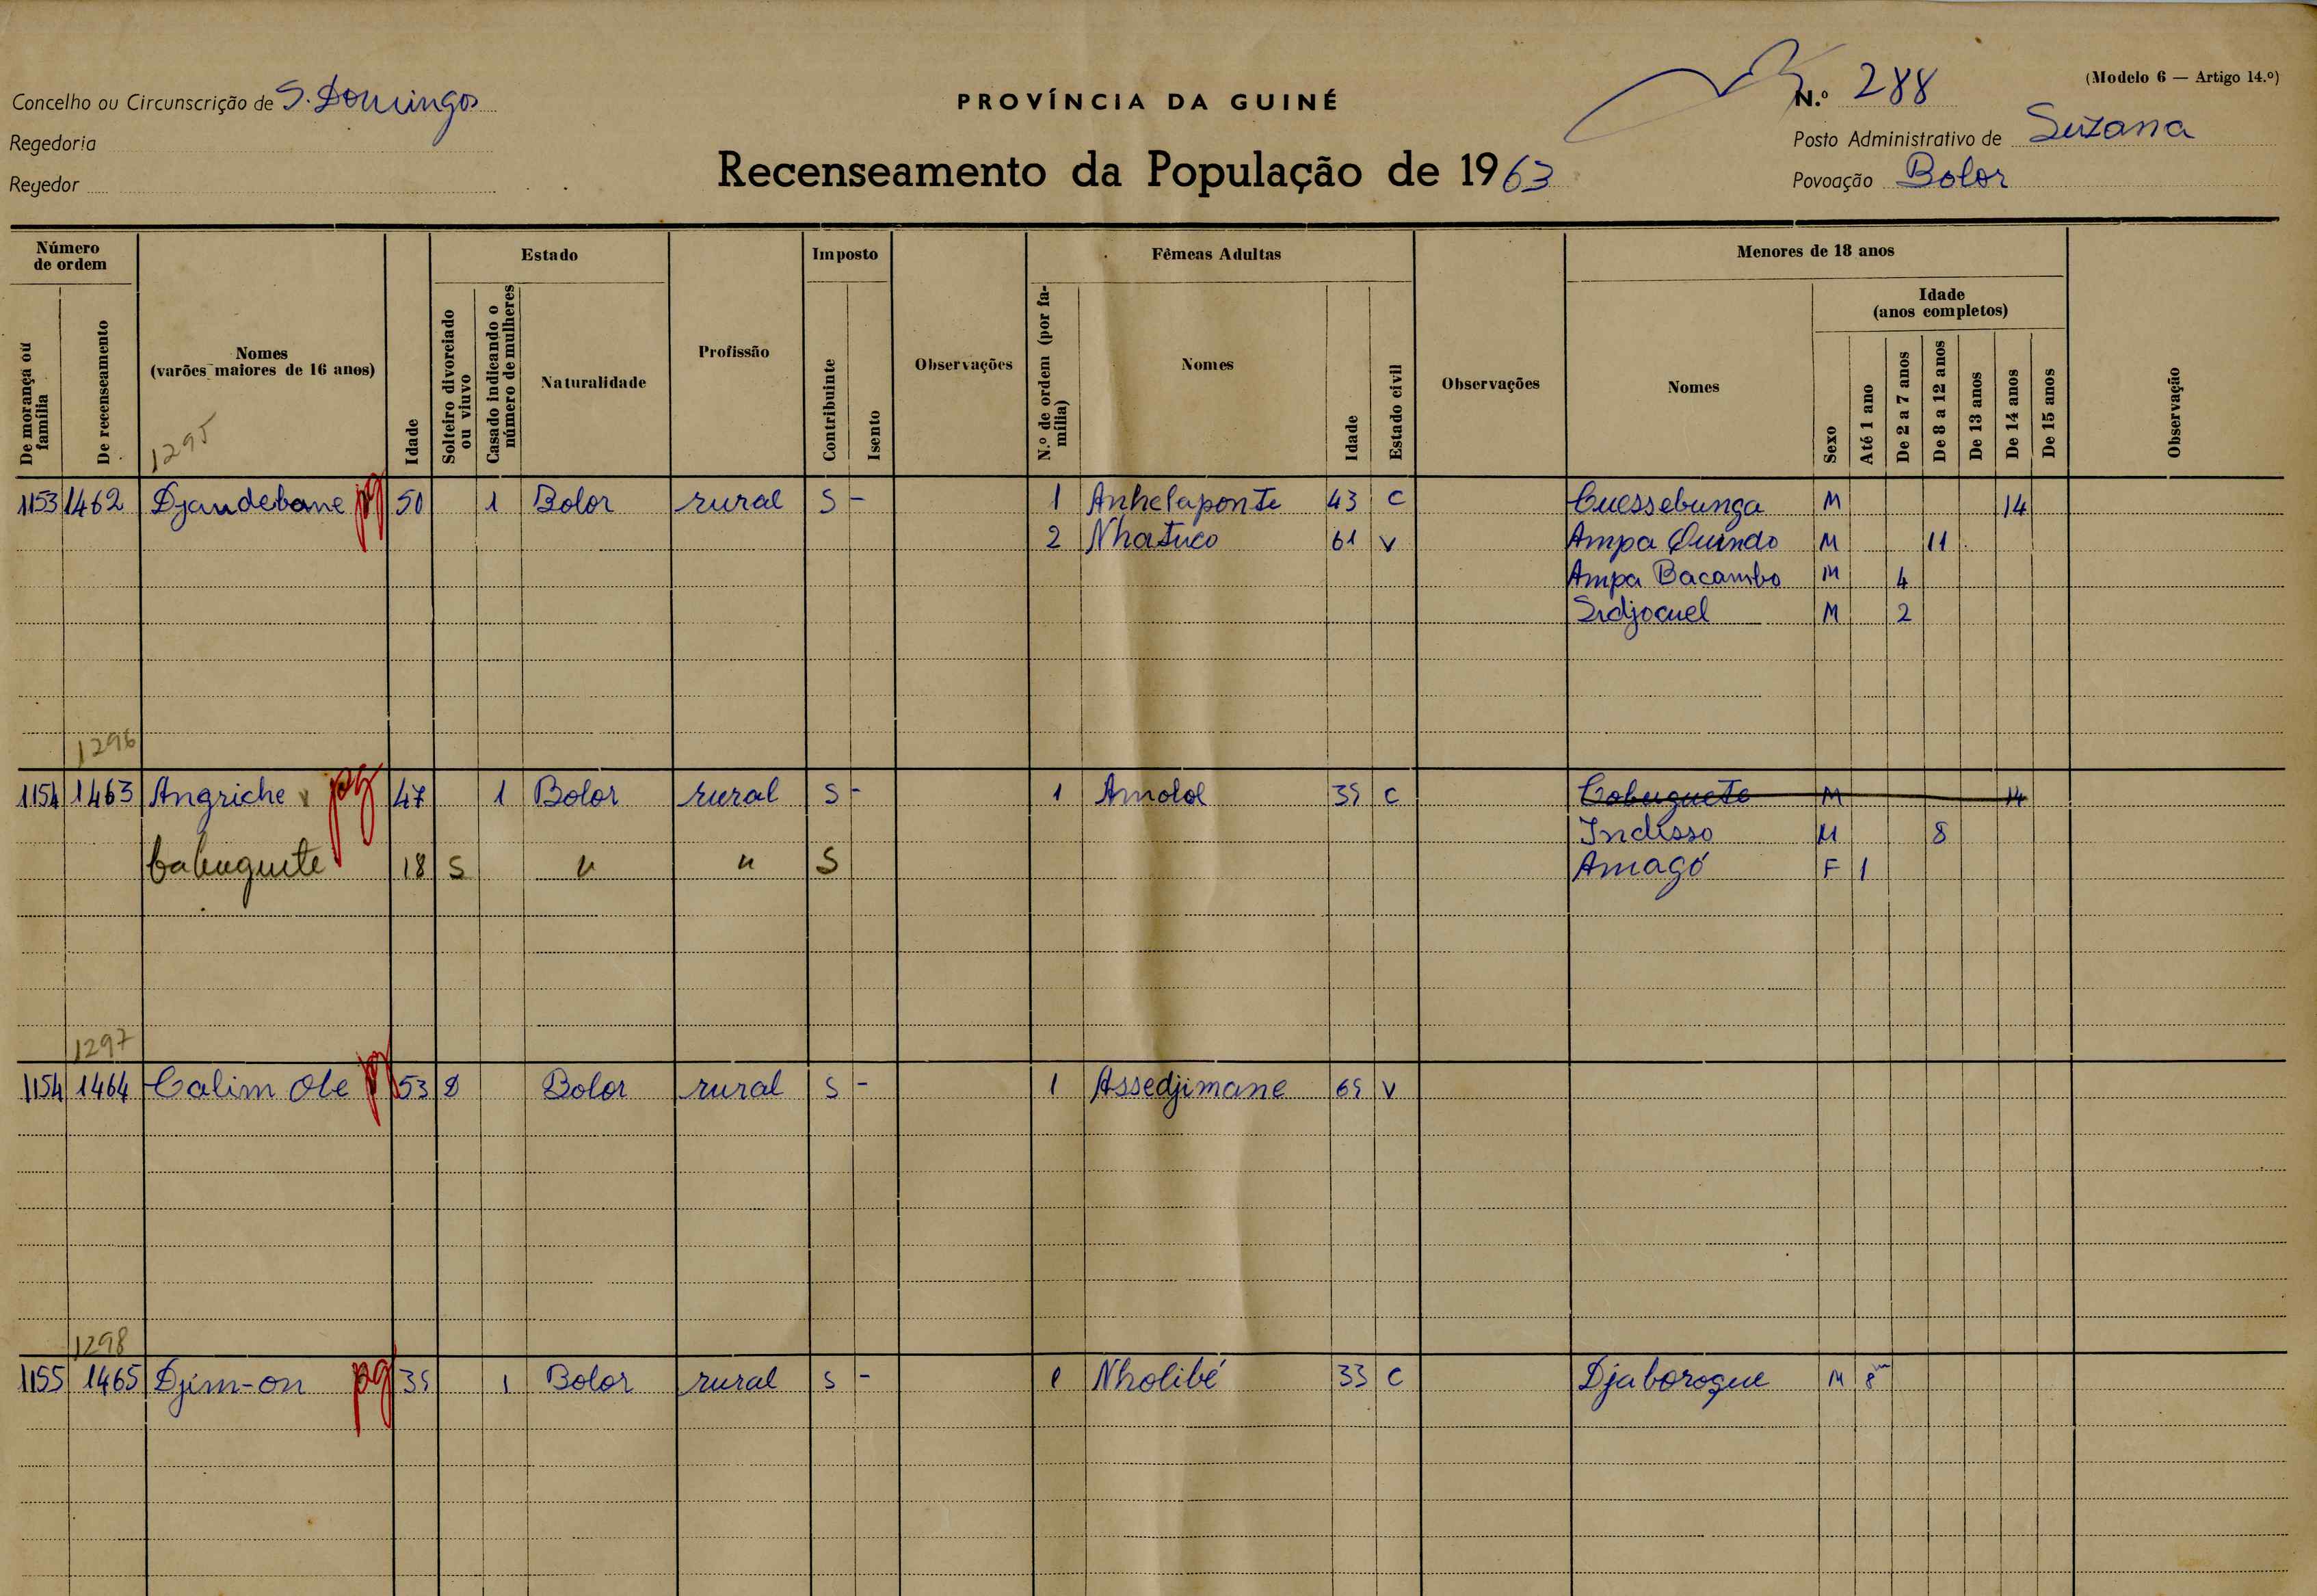 Concelho ou Circunscrição de S. Domingos
Regedoria
Regedor
PROVÍNCIA DA GUINÉ
Recenseamento da População de 1963
(Modelo 6 — Artigo 14.º)
N.º 288
Posto Administrativo de Suzana
Povoação Bolor
Número de ordem
De morança ou família
De recenseamento
Nomes
(varões maiores de 16 anos)
1295
Idade
Estado
Solteiro divorciado ou viuvo
Casado indicando o número de mulheres
Naturalidade
Profissão
Imposto
Contribuinte
Isento
Observações
Fêmeas Adultas
N.º de ordem (por família)
Nomes
Idade
Estado civil
Observações
Menores de 18 anos
Nomes
Idade
(anos completos)
Sexo
Até 1 ano
De 2 a 7 anos
De 8 a 12 anos
De 13 anos
De 14 anos
De 15 anos
Observação
1153 1462 Djandebane pg 50 1 Bolor rural S - 1 Anhelaponte 43 C Cuessebunga M 14
2 Nhatuco 61 V Ampa Quindo M 11
Ampa Bacambo M 4
Sidjocuel M 2
1296
1154 1463 Angriche pg 47 1 Bolor rural S - 1 Amolol 35 C Cobuguete M 14
Indisso M 8
Cabuguete 18 S " " S Amagó F 1
1297
1154 1464 Calim Ole pg 53 S Bolor rural S - 1 Assedjimane 65 V
1298
1155 1465 Djim-on pg 35 1 Bolor rural S - 1 Nholibé 33 C Djaboroque M 8m